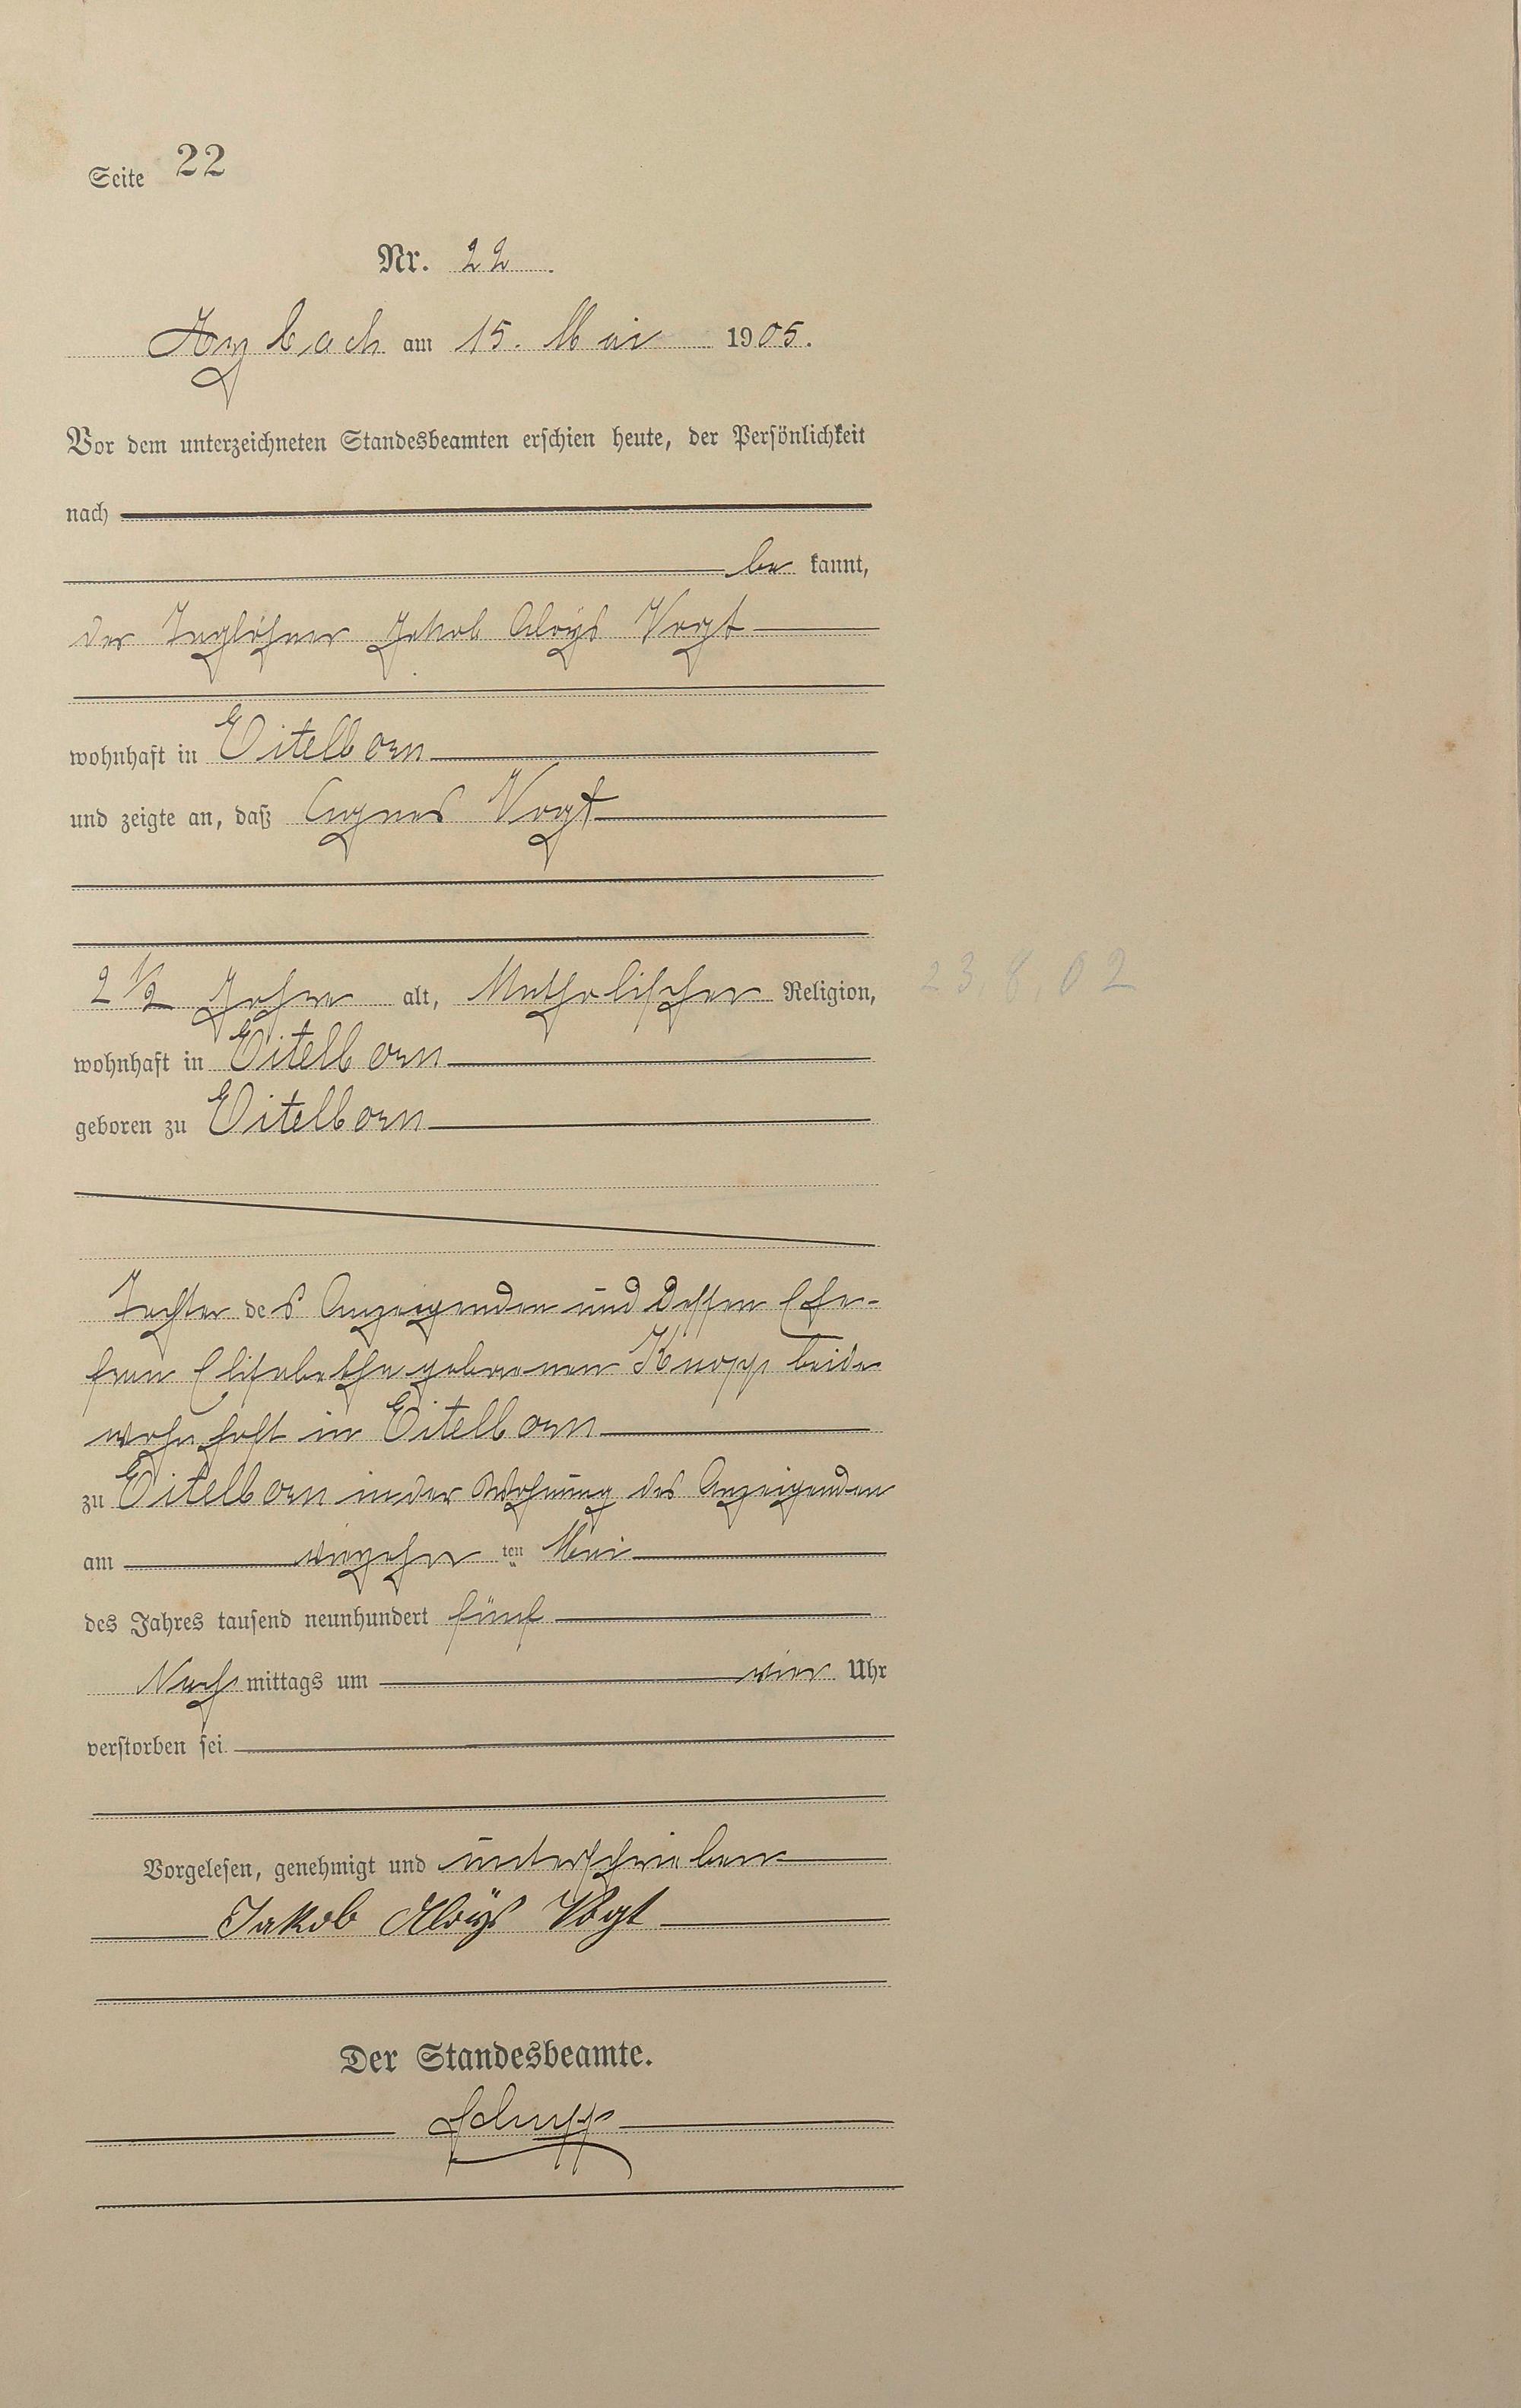 Seite 22
Nr. 22.
Arzbach am 15. Mai 1905.
Vor dem unterzeichneten Standesbeamten erschien heute, der Persönlichkeit
nach
be kannt,
der Taglöhner Jakob Aloÿs Vogt
wohnhaft in Eitelborn
und zeigte an, daß Agnes Vogt
2 1/2 Jahre alt, katholischer Religion, 23.8.02
wohnhaft in Eitelborn
geboren zu Eitelborn
Tochter des Anzeigenden und dessen Ehe-
frau Elisabetha geborenen Knopp beide
wohnhaft in Eitelborn
zu Eitelborn in der Wohnung des Anzeigenden
am vierzehn ten Mai
des Jahres tausend neunhundert fünf
Nach mittags um vier Uhr
verstorben sei.
Vorgelesen, genehmigt und unterschrieben
Jakob Aloÿs Vogt
Der Standesbeamte.